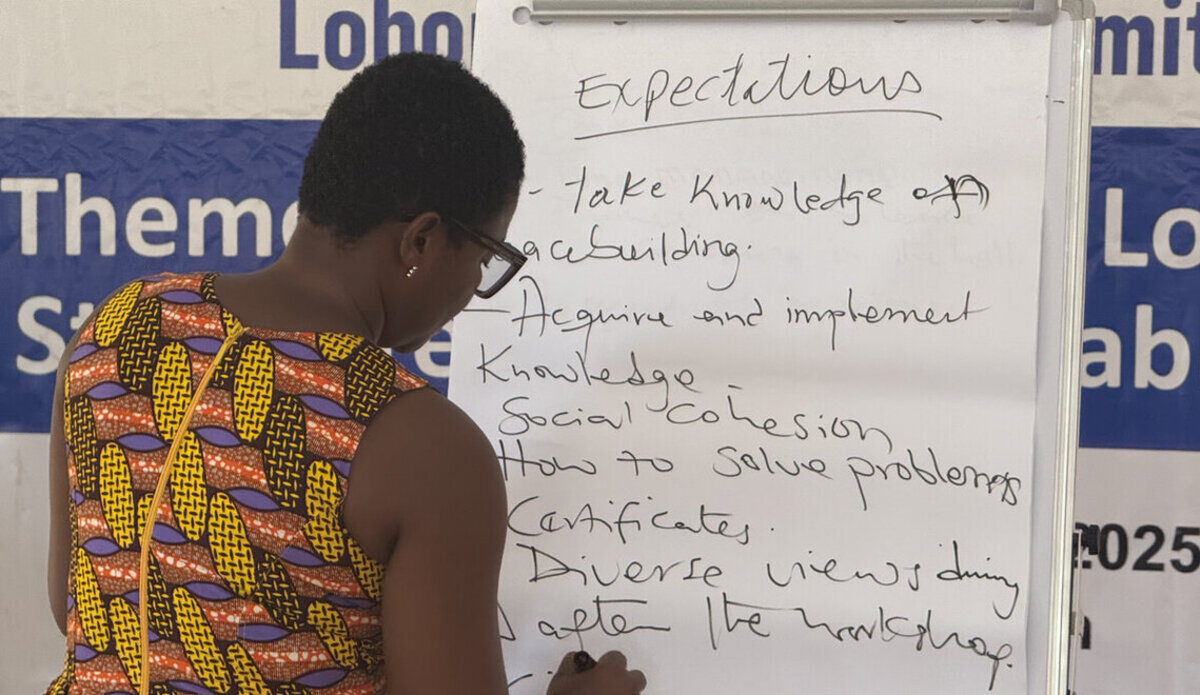 Lobo
mit
Theme
Lo
St
e
ab
2025
Expectations
- Take Knowledge on
acebuilding.
- Acquire and implement
Knowledge -
Social cohesion
How to solve problems
Certificates.
Diverse views during
after the workshop.